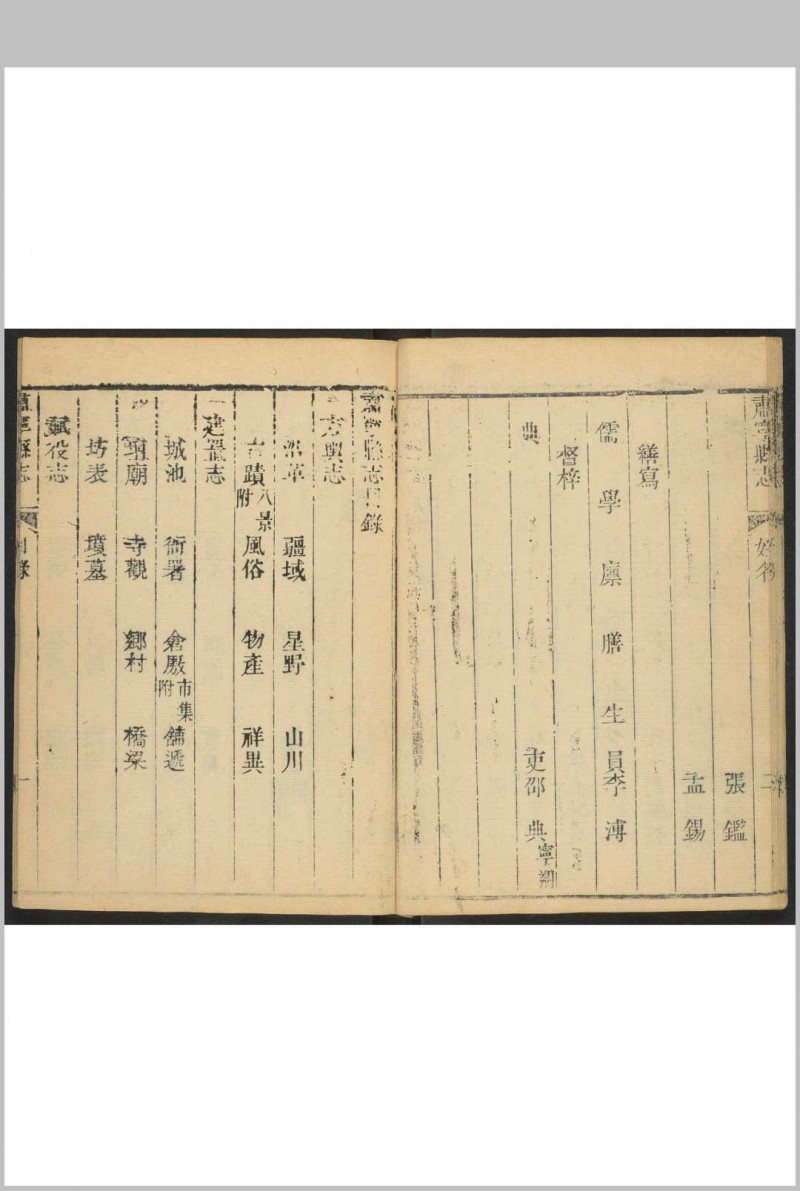 肅寧縣志
姓名
二
張鑑
孟錫
繕寫
儒學廩膳生員李溥
督梓
典吏邵典寧翔
肅寧縣志目錄
方輿志
沿革 疆域 星野 山川
古蹟八景附 風俗 物產 祥異
建置志
城池 衙署 倉廒市集附 舖遞
祠廟 寺觀 鄉村 橋梁
坊表 墳墓
賦役志
肅寧縣志
目錄
一